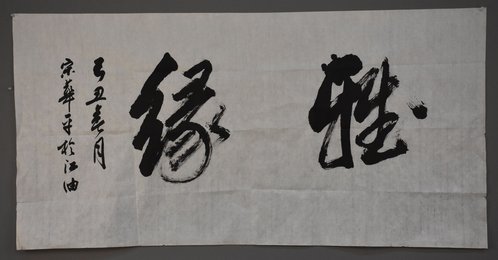 雅缘
己丑春月
宗華平於江油